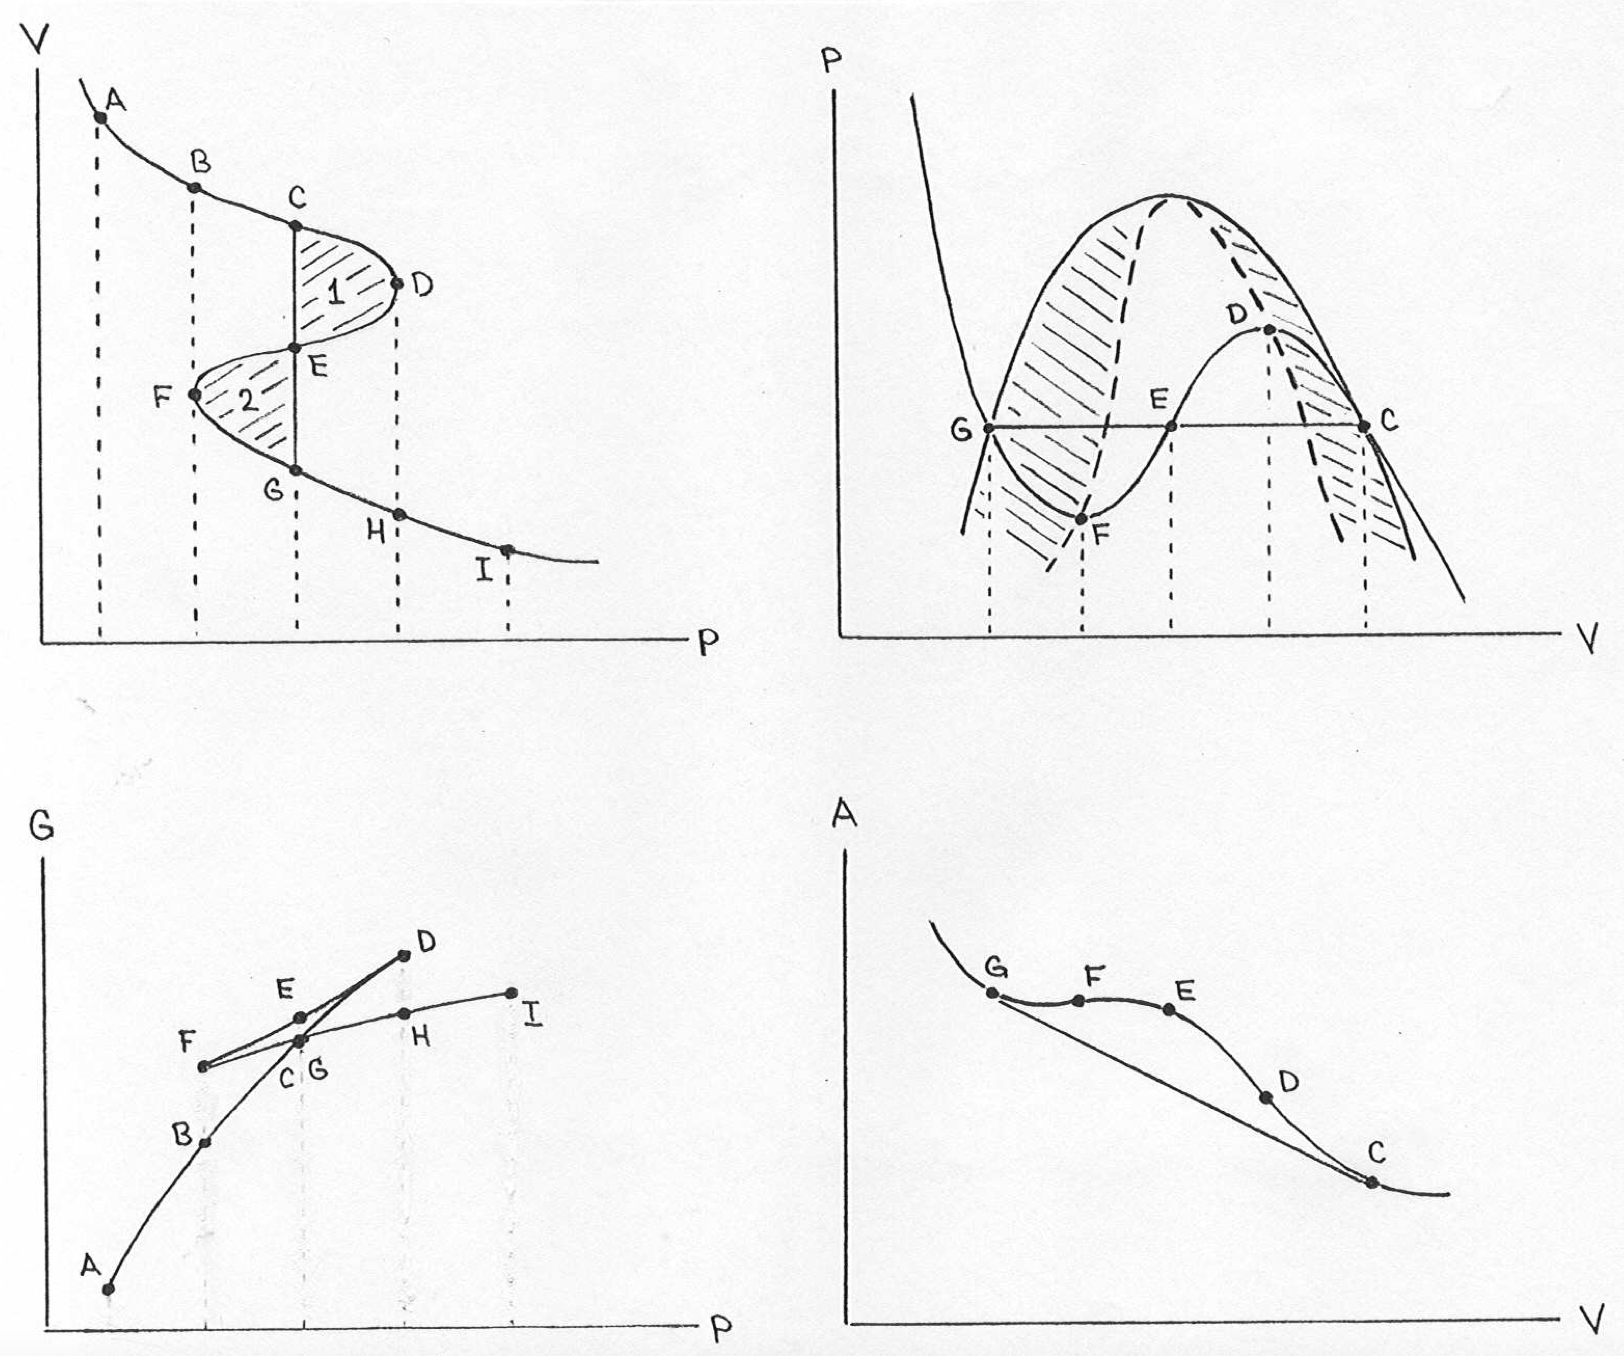 V
A
B
C
1
D
E
F
2
G
H
I
P
P
D
E
G
C
F
V
G
D
E
I
F
H
C G
B
A
P
A
G
F
E
D
C
V